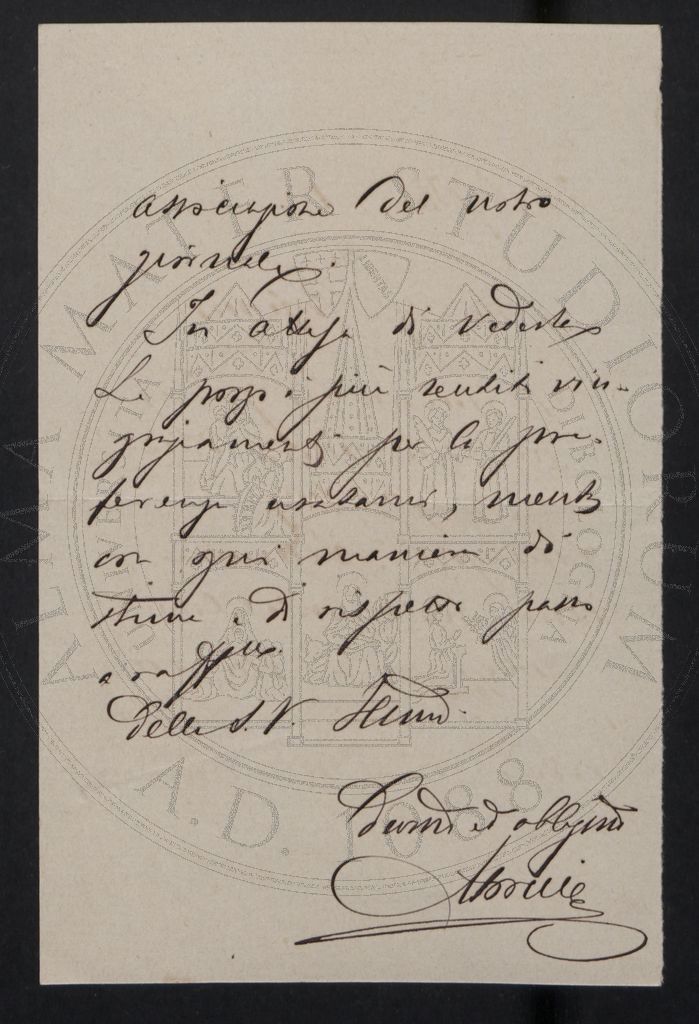 associazione del nostro
giornale.
In attesa di vederla
Le porgo i più sentiti rin-
graziamenti per la pre-
ferenza usatami, mentre
con ogni maniera di
stima e di rispetto passo
a raffermarmi
Della S. V. Illma
Devmo ed obbligmo
ALMA MATER STUDIORUM
A.D. 1088